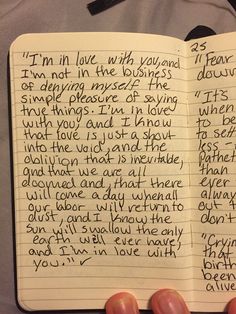 "I'm in love with you, and
I'm not in the business
of denying myself the
simple pleasure of saying
true things. I'm in love
with you, and I know
that love is just a shout
into the void, and the
oblivion that is inevitable,
and that we are all
doomed and that there
will come a day when all
our labor will return to
dust, and I know the
sun will swallow the only
earth we'll ever have,
and I'm in love with
you." ✓
25
"Fear
down
"It's
when
to be
to set
less -
pathet
than
ever
always
out
don't
"Cryin
that
birth
been
alive